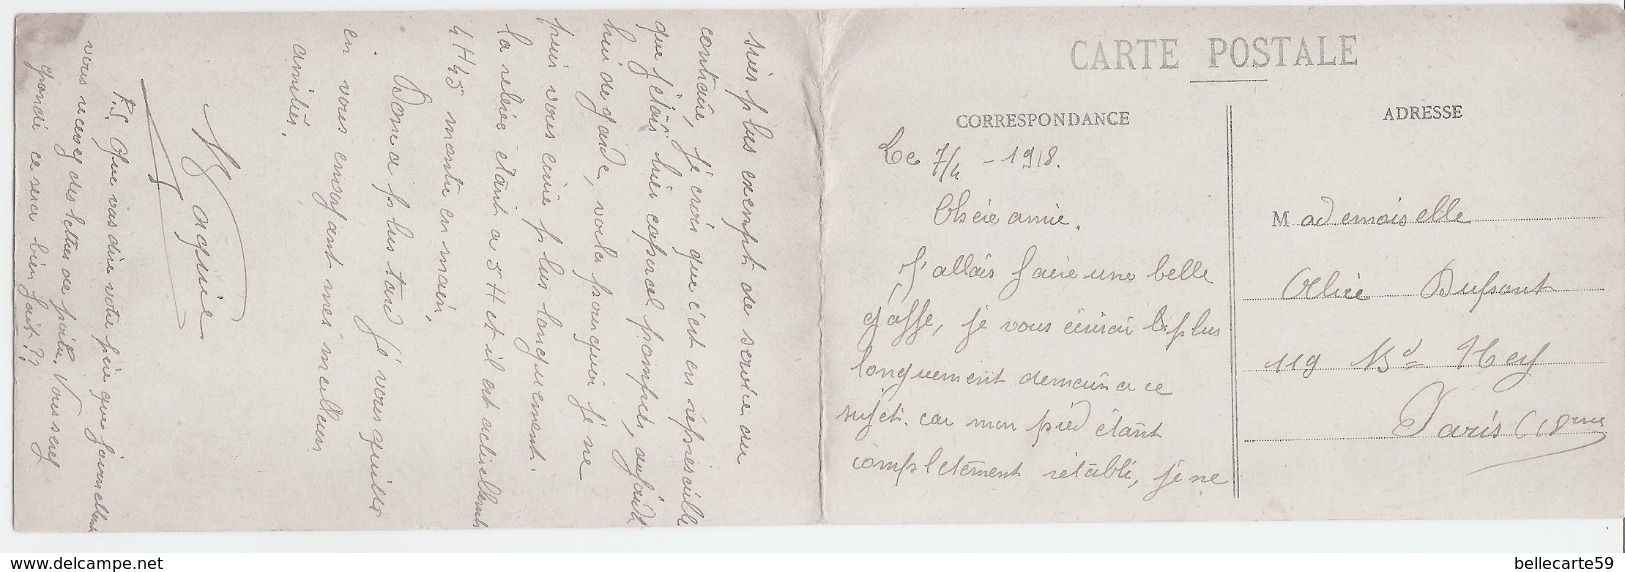 CARTE POSTALE
CORRESPONDANCE
ADRESSE
Le 7/4 - 1918.
Chère amie.
J'allais faire une belle
gaffe, je vous écrirai + plus
longuement demain a ce
sujet. car mon pied étant
complètement rétabli, je ne
Mademoiselle
Alice Dupont
119 Bd Ney
Paris (18ème
suis plus exempt de service, au
contraire, je crois que c'est en représaille
que j'étais hier caporal pompier, aujourd
hui de garde, voila pourquoi je ne
puis vous écrire plus longuement.
la relève étant a 5H et il est actuellement
4H45 montre en main.
Donc a plus tard j' vous quitte
en vous envoyant mes meilleures
amitiés.
P.S. Que vas dire votre père que journellement
vous recevez des lettres de poilu. Vous serez
grondé ce sera bien fait ??
bellecarte59